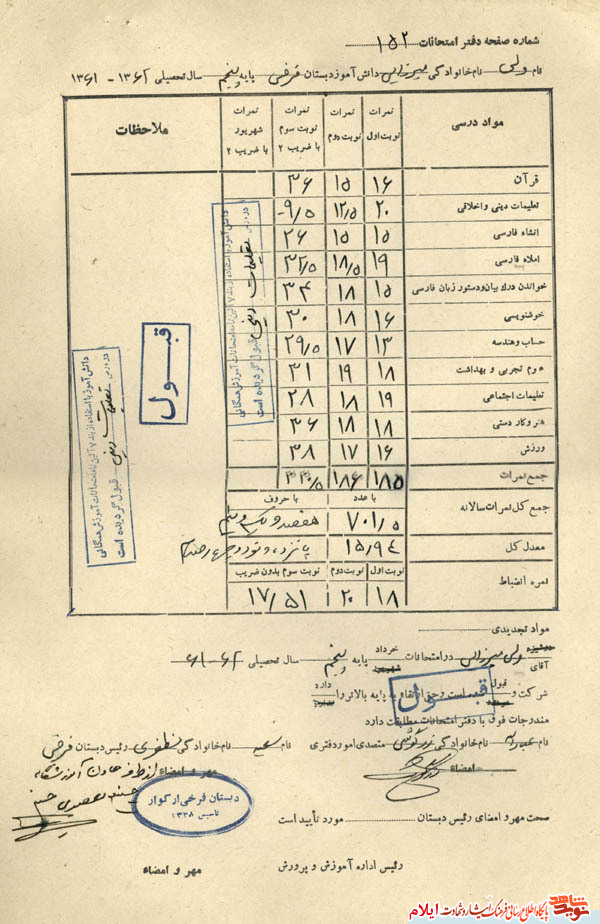 شماره صفحه دفتر امتحانات ۱۵۲
نام ولی نام خانوادگی میرزائی دانش آموز دبستان فرخی پایه پنجم سال تحصیلی ۱۳۶۲ - ۱۳۶۱
مواد درسی نمرات نوبت اول نمرات نوبت دوم نمرات نوبت سوم با ضریب ۲ نمرات شهریور با ضریب ۲ ملاحظات
قرآن ۱۶ ۱۵ ۳۶
تعلیمات دینی و اخلاقی ۲۰ ۱۲/۵ ۹/۵
انشاء فارسی ۱۵ ۱۵ ۲۶
املاء فارسی ۱۹ ۱۸/۵ ۳۲/۵
خواندن درک بیان و دستور زبان فارسی ۱۵ ۱۸ ۳۴
خوشنویسی ۱۶ ۱۸ ۳۰
حساب و هندسه ۱۳ ۱۷ ۲۹/۵
علوم تجربی و بهداشت ۱۸ ۱۹ ۳۱
تعلیمات اجتماعی ۱۹ ۱۸ ۲۸
هنر و کار دستی ۱۸ ۱۸ ۳۶
ورزش ۱۶ ۱۷ ۳۸
جمع نمرات ۱۸۵ ۱۸۶ ۳۳۰/۵
با عدد با حروف
جمع کل نمرات سالانه ۷۰۱/۵ هفتصد و یک و نیم
معدل کل ۱۵/۹۴ پانزده و نود و چهار صدم
نوبت اول نوبت دوم نوبت سوم بدون ضریب
نمره انضباط ۱۸ ۲۰ ۱۷/۵۱
دانش آموز با استفاده از بند ۷ آئین نامه امتحانات آموزش همگانی
در درس تعلیمات دینی قبول گردیده است
قبول
دانش آموز با استفاده از بند ۷ آئین نامه امتحانات آموزش همگانی
در درس تعلیمات دینی قبول گردیده است
مواد تجدیدی
دوشیزه آقای ولی میرزائی در امتحانات خرداد شهریور پایه پنجم سال تحصیلی ۶۲-۶۱
شرکت و قبول شده است و حق ارتقاء به پایه بالاتر را دارد ندارد
قبول
مندرجات فوق با دفتر امتحانات مطابقت دارد
نام نام خانوادگی متصدی امور دفتری نام سعید نام خانوادگی منظوری رئیس دبستان فرخی
امضاء مهر و امضاء از طرف معاون آموزشگاه
دبستان فرخی ارکواز
تاسیس ۱۳۳۸
صحت مهر و امضای رئیس دبستان مورد تأیید است
رئیس اداره آموزش و پرورش مهر و امضاء
نوید شاهد پایگاه اطلاع رسانی فرهنگ ایثار و شهادت ایلام